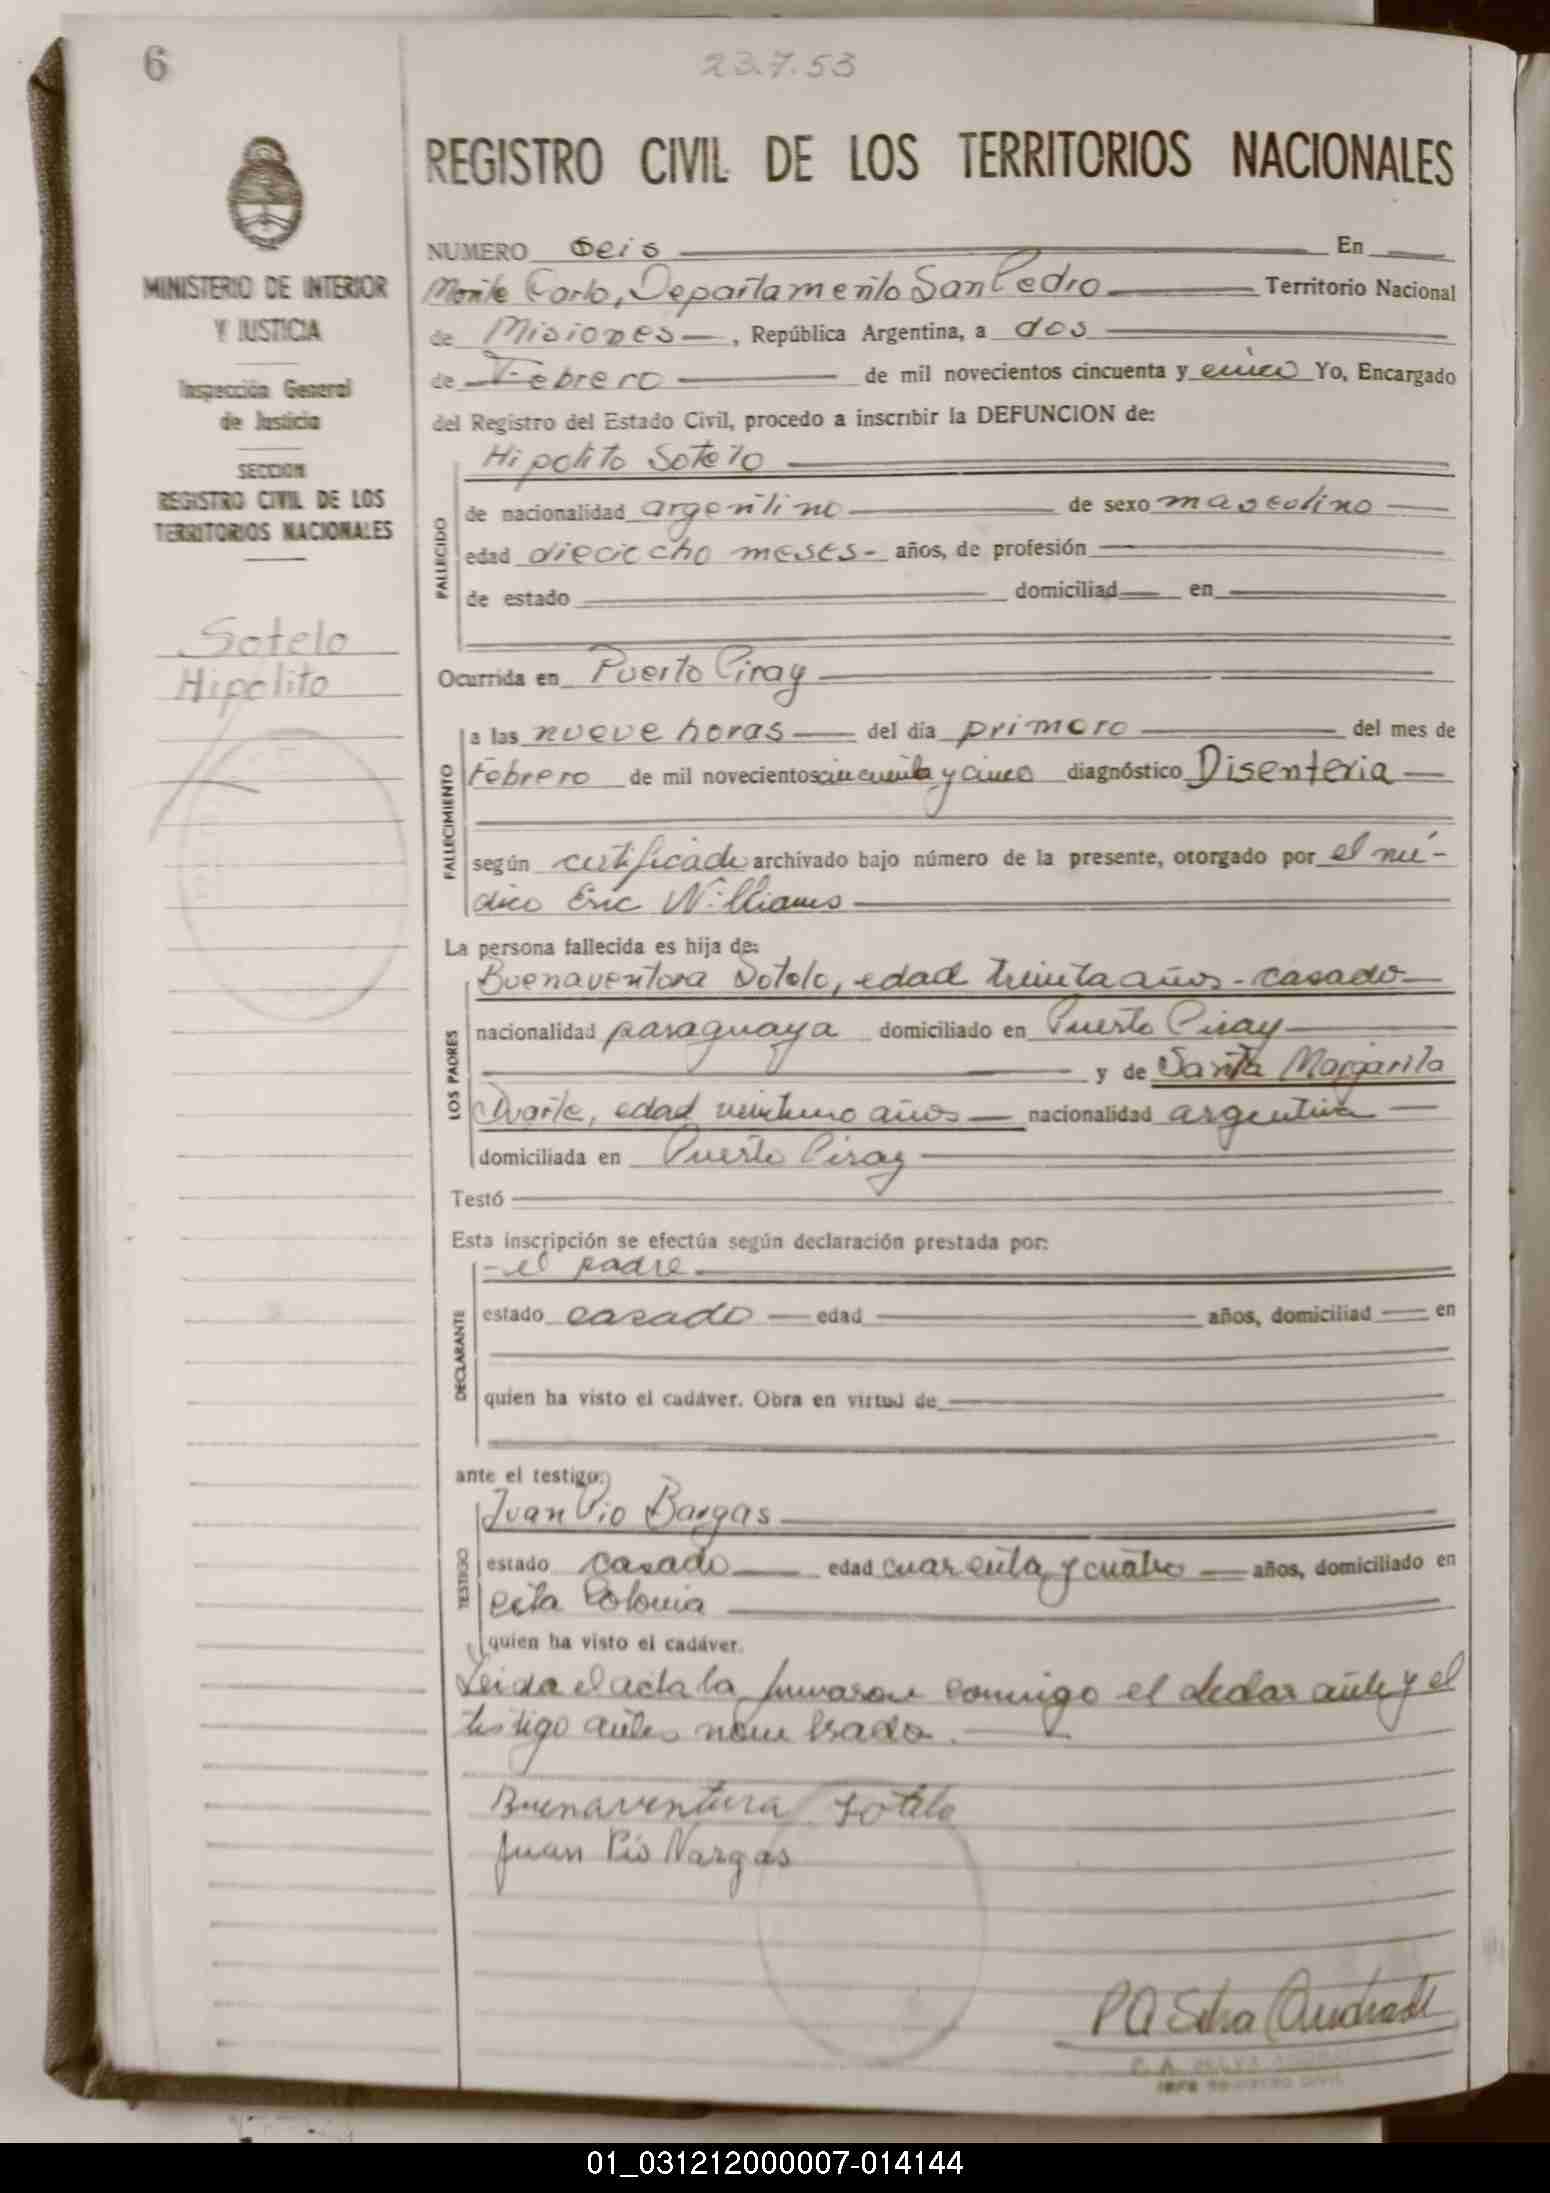 6
23.7.53
REGISTRO CIVIL DE LOS TERRITORIOS NACIONALES
MINISTERIO DE INTERIOR
Y JUSTICIA
Inspección General
de Justicia
SECCION
REGISTRO CIVIL DE LOS
TERRITORIOS NACIONALES
Sotelo
Hipólito
NUMERO Seis En
Monte Carlo, Departamento San Pedro Territorio Nacional
de Misiones, República Argentina, a dos
de Febrero de mil novecientos cincuenta y cinco Yo, Encargado
del Registro del Estado Civil, procedo a inscribir la DEFUNCION de:
FALLECIDO
Hipolito Sotelo
de nacionalidad argentino de sexo masculino
edad dieciocho meses - años, de profesión
de estado domiciliad en
Ocurrida en Puerto Piray
FALLECIMIENTO
a las nueve horas del día primero del mes de
Febrero de mil novecientos cincuenta y cinco diagnóstico Disenteria
según certificado archivado bajo número de la presente, otorgado por el mé-
dico Eric Williams
La persona fallecida es hija de:
LOS PADRES
Buenaventura Sotelo, edad treinta años - casado
nacionalidad paraguaya domiciliado en Puerto Piray
y de Santa Margarita
Duarte, edad veintiuno años nacionalidad argentina
domiciliada en Puerto Piray
Testó
Esta inscripción se efectúa según declaración prestada por:
DECLARANTE
- el padre
estado casado edad años, domiciliad en
quien ha visto el cadáver. Obra en virtud de
ante el testigo:
TESTIGO
Juan Pio Bargas
estado casado edad cuarenta y cuatro años, domiciliado en
esta Colonia
quien ha visto el cadáver.
Leida el acta la firmaron conmigo el declarante y el
testigo antes nombrado.
Buenaventura Sotelo
Juan Pio Vargas
P A Silva Andrade
JEFE REGISTRO CIVIL
01_031212000007-014144